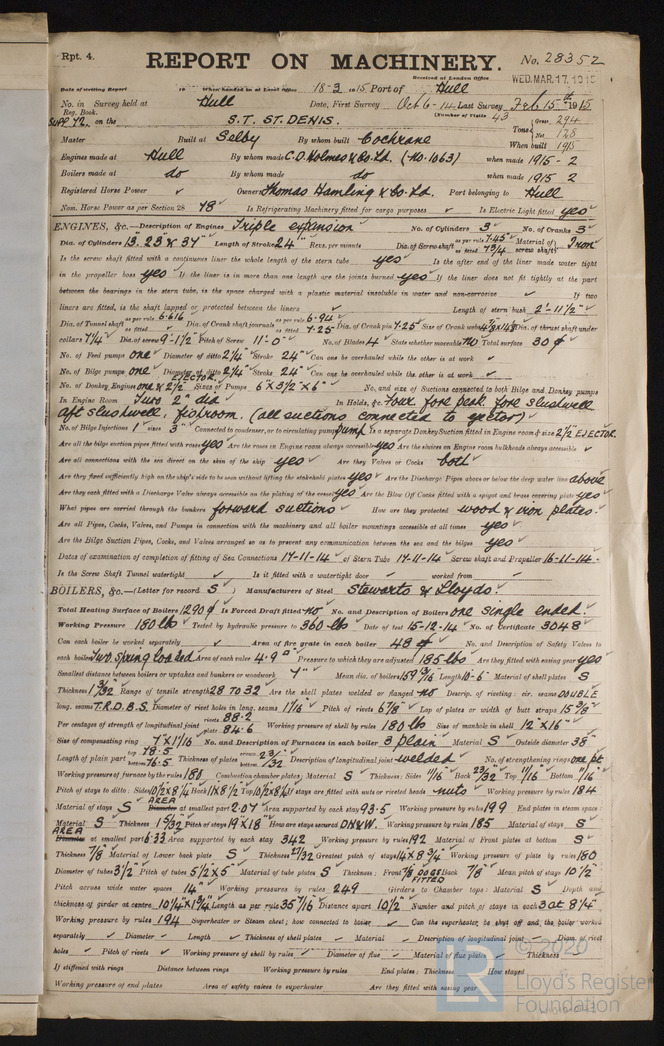 Rpt. 4.
REPORT ON MACHINERY.
No. 28352
Received at London Office WED. MAR. 17. 1915
Date of writing Report 19 When handed in at Local Office 18-3 1915 Port of Hull
No. in Survey held at Hull Date, First Survey Oct 6-14 Last Survey Feb 15th 1915
Reg. Book. (Number of Visits 43
SUPP 72 on the S.T. ST. DENIS. Tons Gross 294 Net 128
Master Built at Selby By whom built Cochrane When built 1915
Engines made at Hull By whom made C.D. Holmes & Co. Ld. (No. 1063) when made 1915 - 2
Boilers made at do By whom made do when made 1915 2
Registered Horse Power Owners Thomas Hamling & Co. Ld. Port belonging to Hull
Nom. Horse Power as per Section 28 78 Is Refrigerating Machinery fitted for cargo purposes Is Electric Light fitted yes
ENGINES, &c.—Description of Engines Triple expansion No. of Cylinders 3 No. of Cranks 3
Dia. of Cylinders 13. 23 & 37 Length of Stroke 24" Revs. per minute Dia. of Screw shaft as per rule 7.45 as fitted 7 3/4 Material of screw shaft Iron
Is the screw shaft fitted with a continuous liner the whole length of the stern tube yes Is the after end of the liner made water tight
in the propeller boss yes If the liner is in more than one length are the joints burned yes If the liner does not fit tightly at the part
between the bearings in the stern tube, is the space charged with a plastic material insoluble in water and non-corrosive If two
liners are fitted, is the shaft lapped or protected between the liners Length of stern bush 2'-11 1/2"
Dia. of Tunnel shaft as per rule 6.616 as fitted Dia. of Crank shaft journals as per rule 6.94 as fitted 7.25 Dia. of Crank pin 7.25 Size of Crank webs 4 5/8 x 14 Dia. of thrust shaft under
collars 7 1/4 Dia. of screw 9'-1 1/2 Pitch of Screw 11'-0" No. of Blades 4 State whether moveable No Total surface 30
No. of Feed pumps one Diameter of ditto 2 1/4 Stroke 24" Can one be overhauled while the other is at work
No. of Bilge pumps one Diameter of ditto 2 1/4 Stroke 24" Can one be overhauled while the other is at work
No. of Donkey Engines one & 2 1/2 EJECTOR Sizes of Pumps 6" x 3 1/2 x 6" No. and size of Suctions connected to both Bilge and Donkey pumps
In Engine Room Two 2" dia In Holds, &c. Four fore peak fore slushwell
aft slushwell, fishroom. (all suctions connected to ejector)
No. of Bilge Injections 1 sizes 3" Connected to condenser, or to circulating pump pump Is a separate Donkey Suction fitted in Engine room & size 2 1/2 EJECTOR
Are all the bilge suction pipes fitted with roses yes Are the roses in Engine room always accessible yes Are the sluices on Engine room bulkheads always accessible
Are all connections with the sea direct on the skin of the ship yes Are they Valves or Cocks both
Are they fixed sufficiently high on the ship's side to be seen without lifting the stokehold plates yes Are the Discharge Pipes above or below the deep water line above
Are they each fitted with a Discharge Valve always accessible on the plating of the vessel yes Are the Blow Off Cocks fitted with a spigot and brass covering plate yes
What pipes are carried through the bunkers forward suctions How are they protected wood & iron plates.
Are all Pipes, Cocks, Valves, and Pumps in connection with the machinery and all boiler mountings accessible at all times yes
Are the Bilge Suction Pipes, Cocks, and Valves arranged so as to prevent any communication between the sea and the bilges yes
Dates of examination of completion of fitting of Sea Connections 17-11-14 of Stern Tube 17-11-14 Screw shaft and Propeller 16-11-14
Is the Screw Shaft Tunnel watertight Is it fitted with a watertight door worked from
BOILERS, &c.—(Letter for record S) Manufacturers of Steel Stewarts & Lloyds
Total Heating Surface of Boilers 1290 Is Forced Draft fitted No No. and Description of Boilers one single ended.
Working Pressure 180 lbs Tested by hydraulic pressure to 360 lbs Date of test 15-12-14 No. of Certificate 3048
Can each boiler be worked separately Area of fire grate in each boiler 48 No. and Description of Safety Valves to
each boiler Two spring loaded Area of each valve 4.9 Pressure to which they are adjusted 185 lbs Are they fitted with easing gear yes
Smallest distance between boilers or uptakes and bunkers or woodwork Mean dia. of boilers 159 13/16 Length 10-6" Material of shell plates S
Thickness 1 3/32 Range of tensile strength 28 TO 32 Are the shell plates welded or flanged no Descrip. of riveting: cir. seams DOUBLE
long. seams T.R.D.B.S. Diameter of rivet holes in long. seams 1 1/16 Pitch of rivets 6 7/8 Lap of plates or width of butt straps 15 5/8
Per centages of strength of longitudinal joint rivets 88.2 plate 84.6 Working pressure of shell by rules 180 lb Size of manhole in shell 12" x 16"
Size of compensating ring 7" x 1 1/16 No. and Description of Furnaces in each boiler 3 plain Material S Outside diameter 38"
Length of plain part top 78.5 bottom 76.5 Thickness of plates crown 23/32 bottom Description of longitudinal joint welded No. of strengthening rings one pt
Working pressure of furnace by the rules 180 Combustion chamber plates: Material S Thickness: Sides 11/16 Back 23/32 Top 11/16 Bottom 11/16
Pitch of stays to ditto: Sides 10 1/2 x 8 1/4 Back 11 x 8 1/2 Top 10 1/2 x 8 1/4 If stays are fitted with nuts or riveted heads nuts Working pressure by rules 184
Material of stays S AREA Diameter at smallest part 2.07 Area supported by each stay 93.5 Working pressure by rules 199 End plates in steam space:
Material S Thickness 1 5/32 Pitch of stays 19" x 18" How are stays secured DN&W. Working pressure by rules 185 Material of stays S
AREA Diameter at smallest part 6.33 Area supported by each stay 342 Working pressure by rules 192 Material of Front plates at bottom S
Thickness 7/8 Material of Lower back plate S Thickness 27/32 Greatest pitch of stays 14 x 8 3/4 Working pressure of plate by rules 180
Diameter of tubes 3 1/2 Pitch of tubes 5 1/2 x 5" Material of tube plates S Thickness: Front 7/8 DOUBS FITTED Back 7/8 Mean pitch of stays 10 1/2
Pitch across wide water spaces 14" Working pressures by rules 249 Girders to Chamber tops: Material S Depth and
thickness of girder at centre 10 1/4 x 1 3/4 Length as per rule 35 7/16 Distance apart 10 1/2 Number and pitch of stays in each 3 at 8 1/4"
Working pressure by rules 194 Superheater or Steam chest; how connected to boiler Can the superheater be shut off and the boiler worked
separately Diameter Length Thickness of shell plates Material Description of longitudinal joint Diam. of rivet
holes Pitch of rivets Working pressure of shell by rules Diameter of flue Material of flue plates Thickness
If stiffened with rings Distance between rings Working pressure by rules End plates: Thickness How stayed
Working pressure of end plates Area of safety valves to superheater Are they fitted with easing gear
© 2020
Lloyd's Register
Foundation